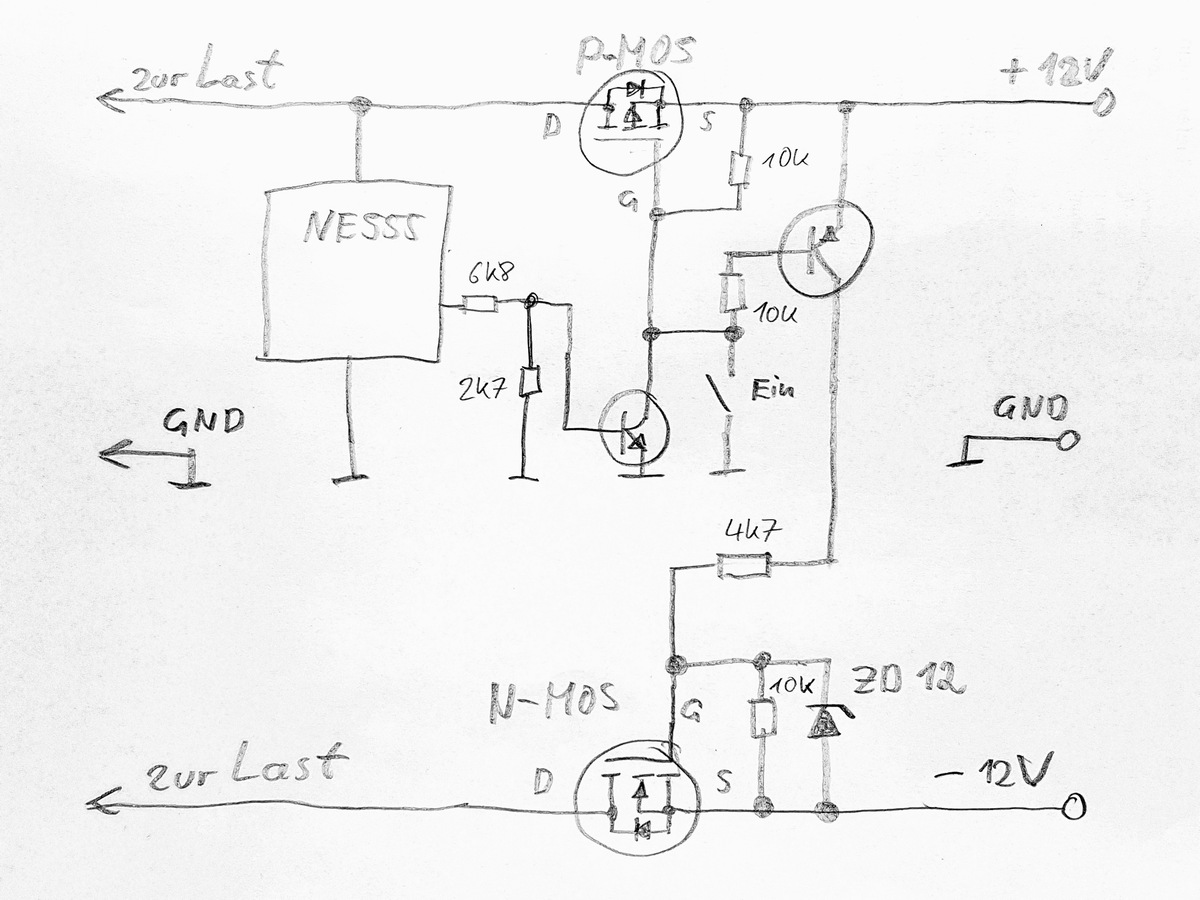 P-MOS
zur Last
+12V
D
S
10k
G
NE555
6k8
10k
2k7
Ein
GND
GND
4k7
N-MOS
G
10k
ZD 12
zur Last
D
S
-12V